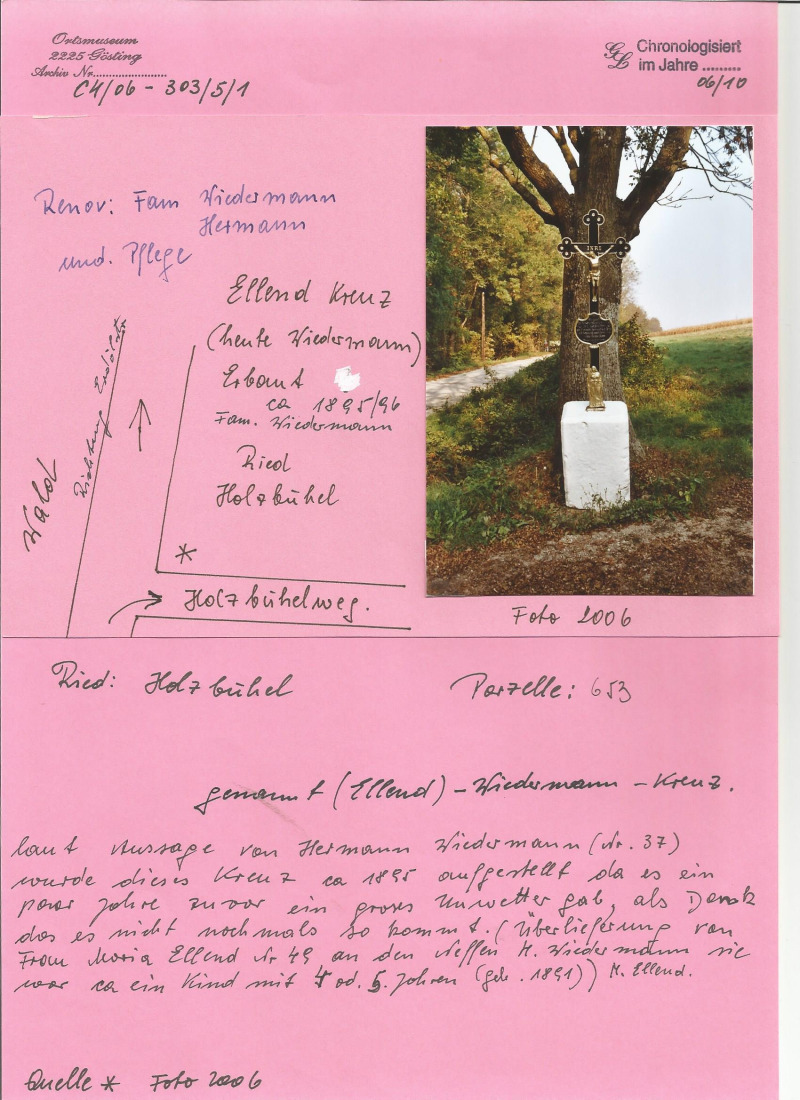 Ortsmuseum
2225 Gösting
Archiv Nr.......................
C4/06 - 303/5/1
GL Chronologisiert
im Jahre .........
06/10
Renov: Fam Wiedermann
Hermann
und. Pflege
Ellend Kreuz
(heute Wiedermann)
Erbaut
ca 1895/96
Fam. Wiedermann
Ried
Holzbühel
Wald
Richtung
*
Holzbühelweg.
INRI
Foto 2006
Ried: Holzbühel
Parzelle: 653
genannt (Ellend) - Wiedermann - Kreuz.
laut Aussage von Hermann Wiedermann (Nr. 37)
wurde dieses Kreuz ca 1895 aufgestellt da es ein
paar Jahre zuvor ein groses Unwetter gab, als Dank
das es nicht nochmals so kommt. (Überlieferung von
Frau Maria Ellend Nr 49 an den Neffen H. Wiedermann sie
war ca ein Kind mit 4 od. 5. Jahren (geb. 1891)) M. Ellend.
Quelle * Foto 2006